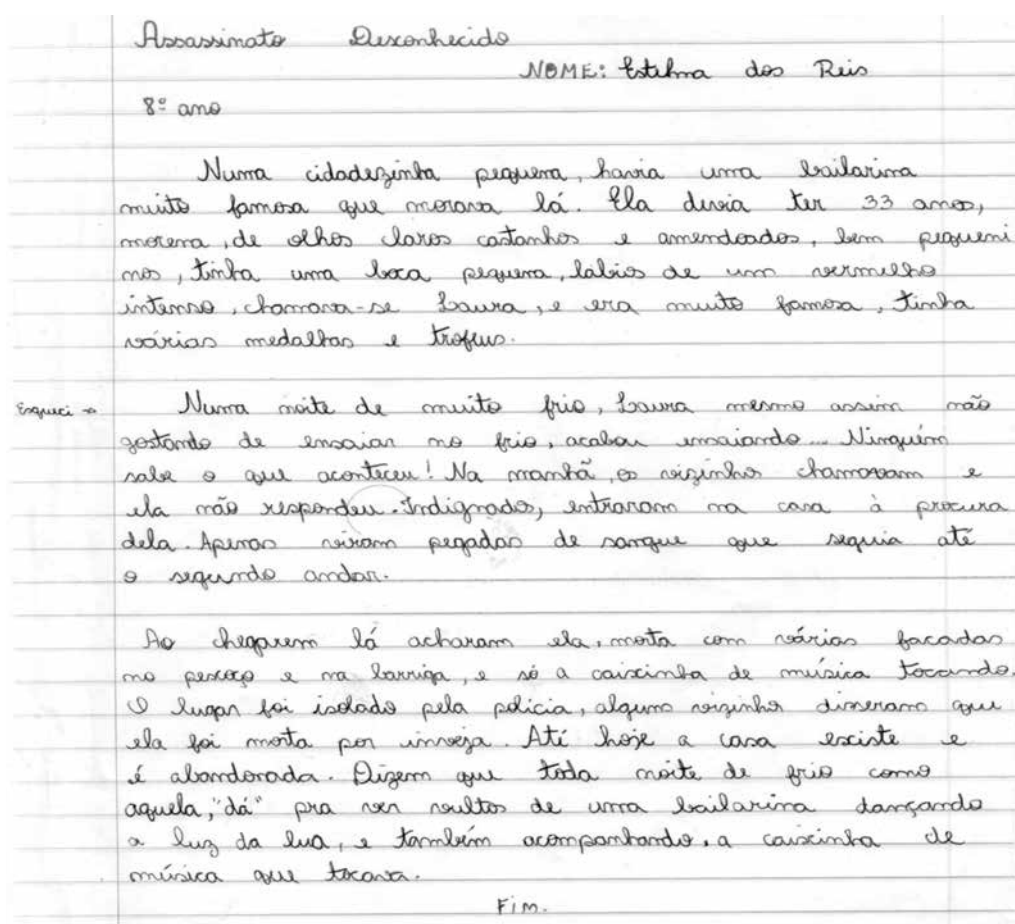 Assassinato Desconhecido
NOME: Estelma dos Reis
8º ano
Numa cidadezinha pequena, havia uma bailarina
muito famosa que morava lá. Ela devia ter 33 anos,
morena, de olhos claros castanhos e amendoados, bem pequeni
nos, tinha uma boca pequena, lábios de um vermelho
intenso, chamava-se Laura, e era muito famosa, tinha
várias medalhas e trofeus.
Esqueci → Numa noite de muito frio, Laura mesmo assim não
gostando de ensaiar no frio, acabou ensaiando... Ninguém
sabe o que aconteceu! Na manhã, os vizinhos chamavam e
ela não respondeu. Indignados, entraram na casa à procura
dela. Apenas viram pegadas de sangue que seguia até
o segundo andar.
Ao chegarem lá acharam ela, morta com várias facadas
no pescoço e na barriga, e só a caixinha de música tocando.
O lugar foi isolado pela polícia, alguns vizinhos disseram que
ela foi morta por inveja. Até hoje a casa existe e
é abandonada. Dizem que toda noite de frio como
aquela, "dá" pra ver vultos de uma bailarina dançando
a luz da lua, e também acompanhando, a caixinha de
música que tocava.
Fim.